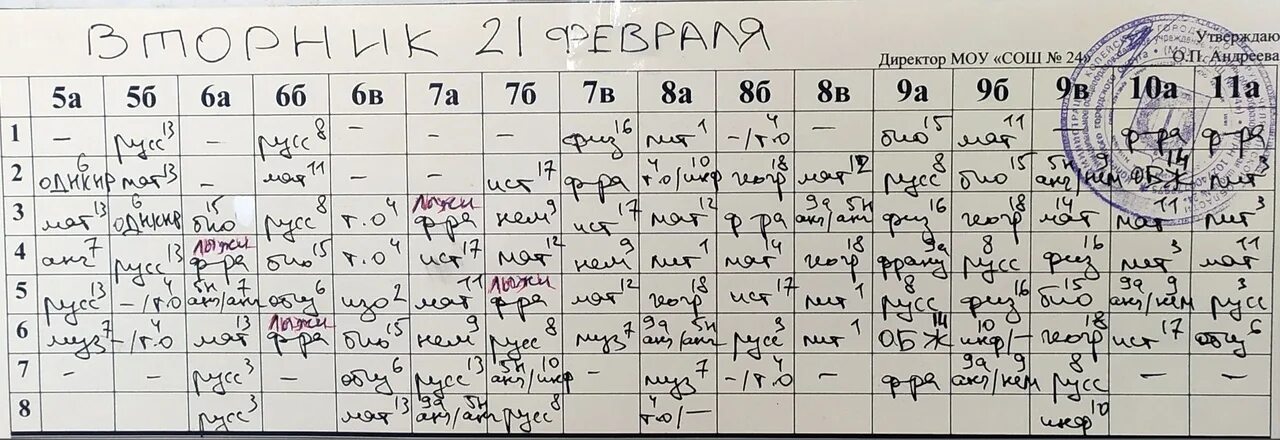 ВТОРНИК 21 ФЕВРАЛЯ
Утверждаю
Директор МОУ «СОШ № 24» О.П. Андреева
5а 5б 6а 6б 6в 7а 7б 7в 8а 8б 8в 9а 9б 9в 10а 11а
1 – русс13 – русс8 – – – физ16 лит1 –/т.о4 – био15 мат11 – ф-ра ф-ра
2 ОДНКНР6 мат13 – мат11 ист17 ф-ра т.о4/инф10 геогр18 мат12 русс8 био15 анг5н/нем9 ОБЖ14 лит3
3 мат13 ОДНКНР6 био15 русс8 т.о4 лыжи ф-ра нем9 ист17 мат12 ф-ра анг9а/анг5н физ16 геогр18 мат14 мат11 лит3
4 анг7 русс13 лыжи ф-ра био15 т.о4 ист17 мат12 нем9 лит1 мат14 геогр18 франц9а русс8 физ16 лит3 мат11
5 русс13 –/т.о4 анг5н/анг7 общ6 изо2 мат11 лыжи ф-ра мат12 геогр18 ист17 лит1 русс8 физ16 био15 анг9а/нем9 русс3
6 муз7 –/т.о4 мат13 лыжи ф-ра био15 нем9 русс8 муз7 анг9а/анг5н русс3 лит1 ОБЖ14 инф10/– геогр18 ист17 общ6
7 – – русс3 – общ6 русс13 анг5н/инф10 – муз7 –/т.о4 – ф-ра анг9а/нем9 русс8 – –
8 русс3 мат13 анг9а/анг5н русс8 т.о4/– инф10